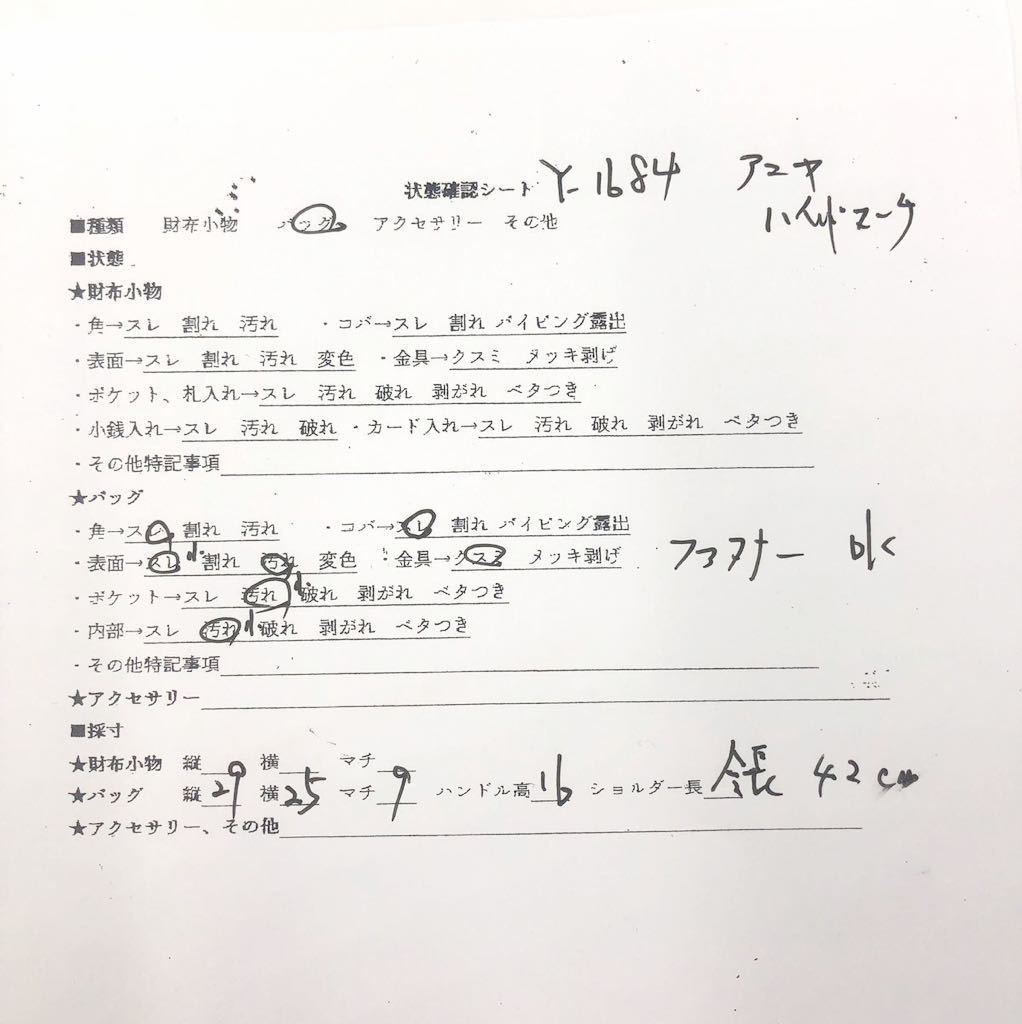 状態確認シート Y-1684 アニヤ
ハインドマーチ
■種類 財布小物 バッグ アクセサリー その他
■状態
★財布小物
・角→スレ 割れ 汚れ ・コバ→スレ 割れ パイピング露出
・表面→スレ 割れ 汚れ 変色 ・金具→クスミ メッキ剥げ
・ポケット、札入れ→スレ 汚れ 破れ 剥がれ ベタつき
・小銭入れ→スレ 汚れ 破れ ・カード入れ→スレ 汚れ 破れ 剥がれ ベタつき
・その他特記事項
★バッグ
・角→スレ 割れ 汚れ ・コバ→スレ 割れ パイピング露出
・表面→スレ 小 割れ 汚れ 変色 ・金具→クスミ メッキ剥げ ファスナー ok
・ポケット→スレ 汚れ 小 破れ 剥がれ ベタつき
・内部→スレ 汚れ 小 破れ 剥がれ ベタつき
・その他特記事項
★アクセサリー
■採寸
★財布小物 縦 横 マチ
★バッグ 縦29 横25 マチ9 ハンドル高16 ショルダー長 全長 42cm
★アクセサリー、その他